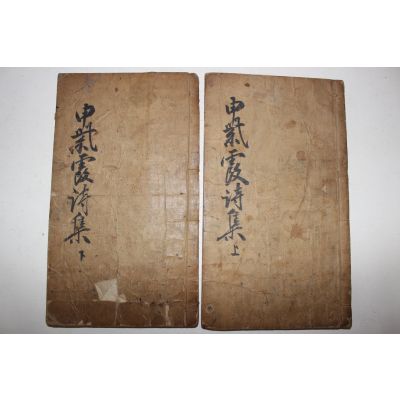 申紫霞詩集上
申紫霞詩集下